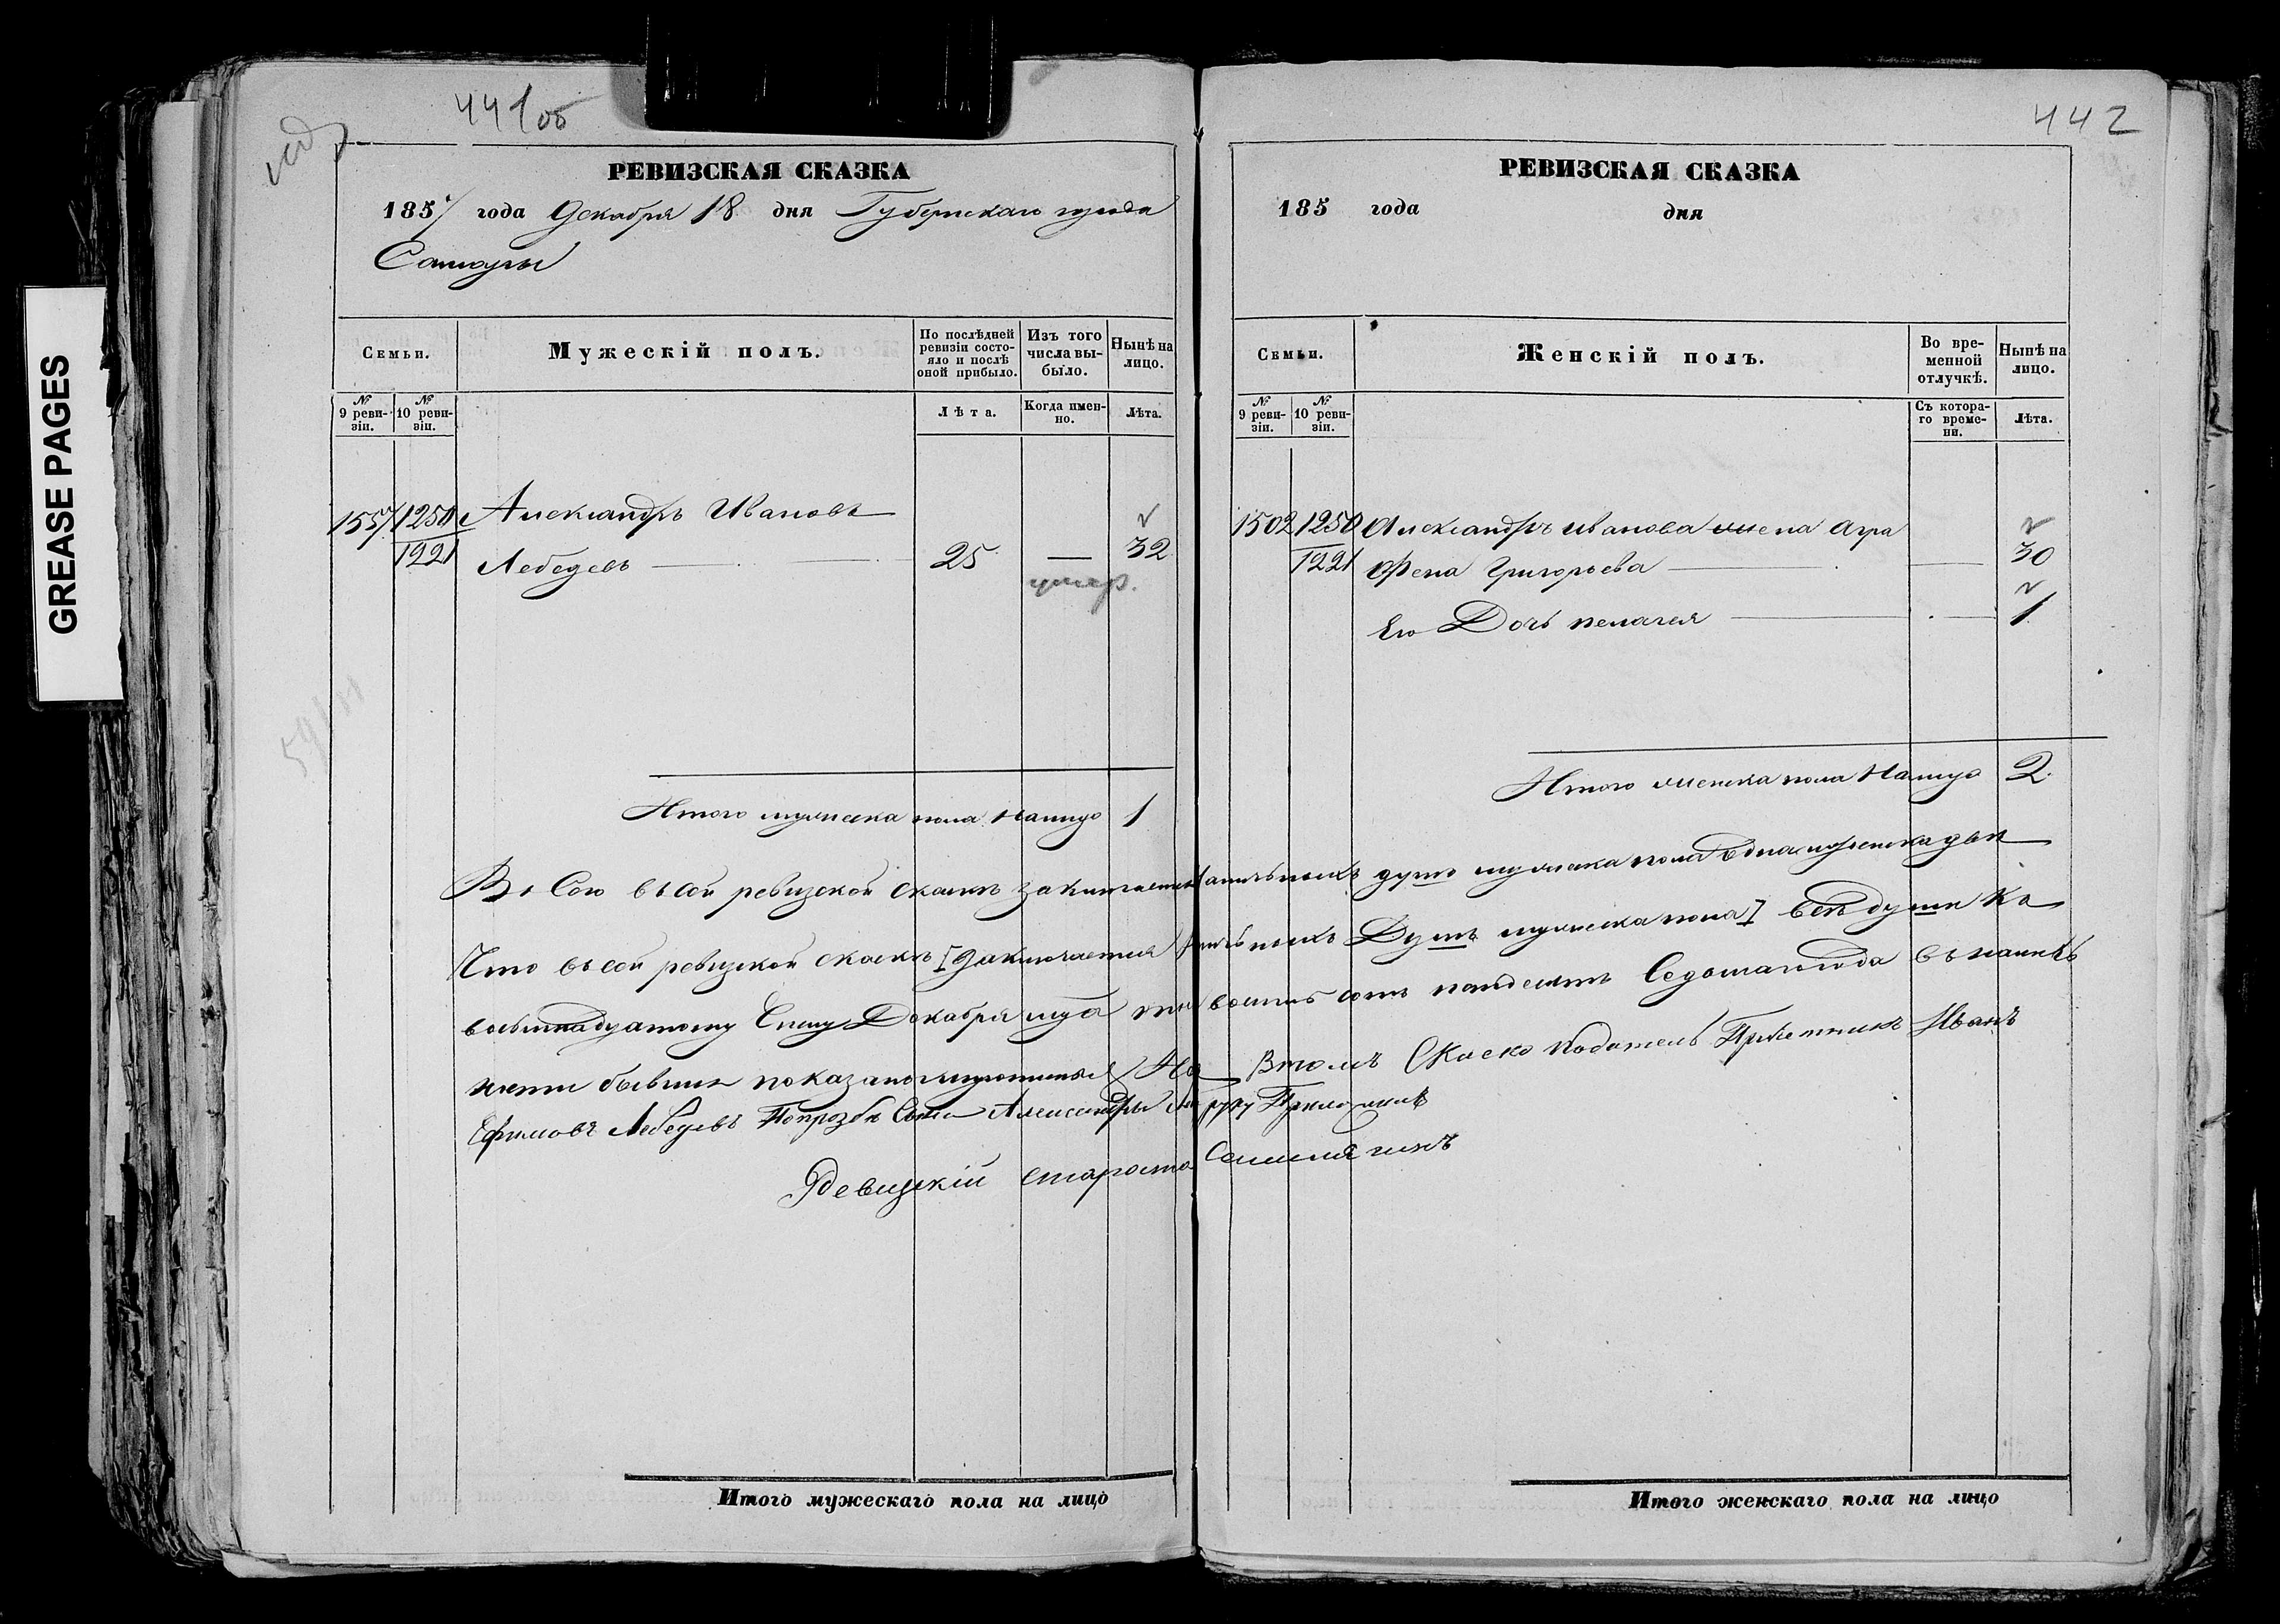 GREASE PAGES
441об
РЕВИЗСКАЯ СКАЗКА
1857 года Декабря 18 дня Губернскаго города
Самары
Семьи.
Мужескій полъ.
По послѣдней ревизіи состояло и послѣ оной прибыло.
Изъ того числа выбыло.
Нынѣ на лицо.
№ 9 ревизіи.
№ 10 ревизіи.
Лѣта.
Когда именно.
Лѣта.
1557 1250 Александръ Ивановъ
1221 Лебедевъ 25 — 32
умер.
Итого мужеска пола налицо 1
442
РЕВИЗСКАЯ СКАЗКА
185 года дня
Семьи.
Женскій полъ.
Во временной отлучкѣ.
Нынѣ на лицо.
№ 9 ревизіи.
№ 10 ревизіи.
Съ котораго времени.
Лѣта.
1502 1250 Александръ Иванова жена Агра
1221 фена Григорьева — 30
Его Дочь пелагея — 1
Итого женска пола налицо 2
въ сей ревизской скаскѣ душъ мужеска пола одна женска двѣ
Что въ сей ревизской скаскѣ заключается Душъ мужеска пола 1 всѣ души Ко
восьмнадцатому Числу Декабря восемь сотъ Седомаго года въ
бывшия показаны На Втомъ Скаско податель Иванъ
Ефимовъ Лебедевъ Попрозбѣ Руку Приложилъ
Ревизскій староста
Итого мужескаго пола на лицо
Итого женскаго пола на лицо